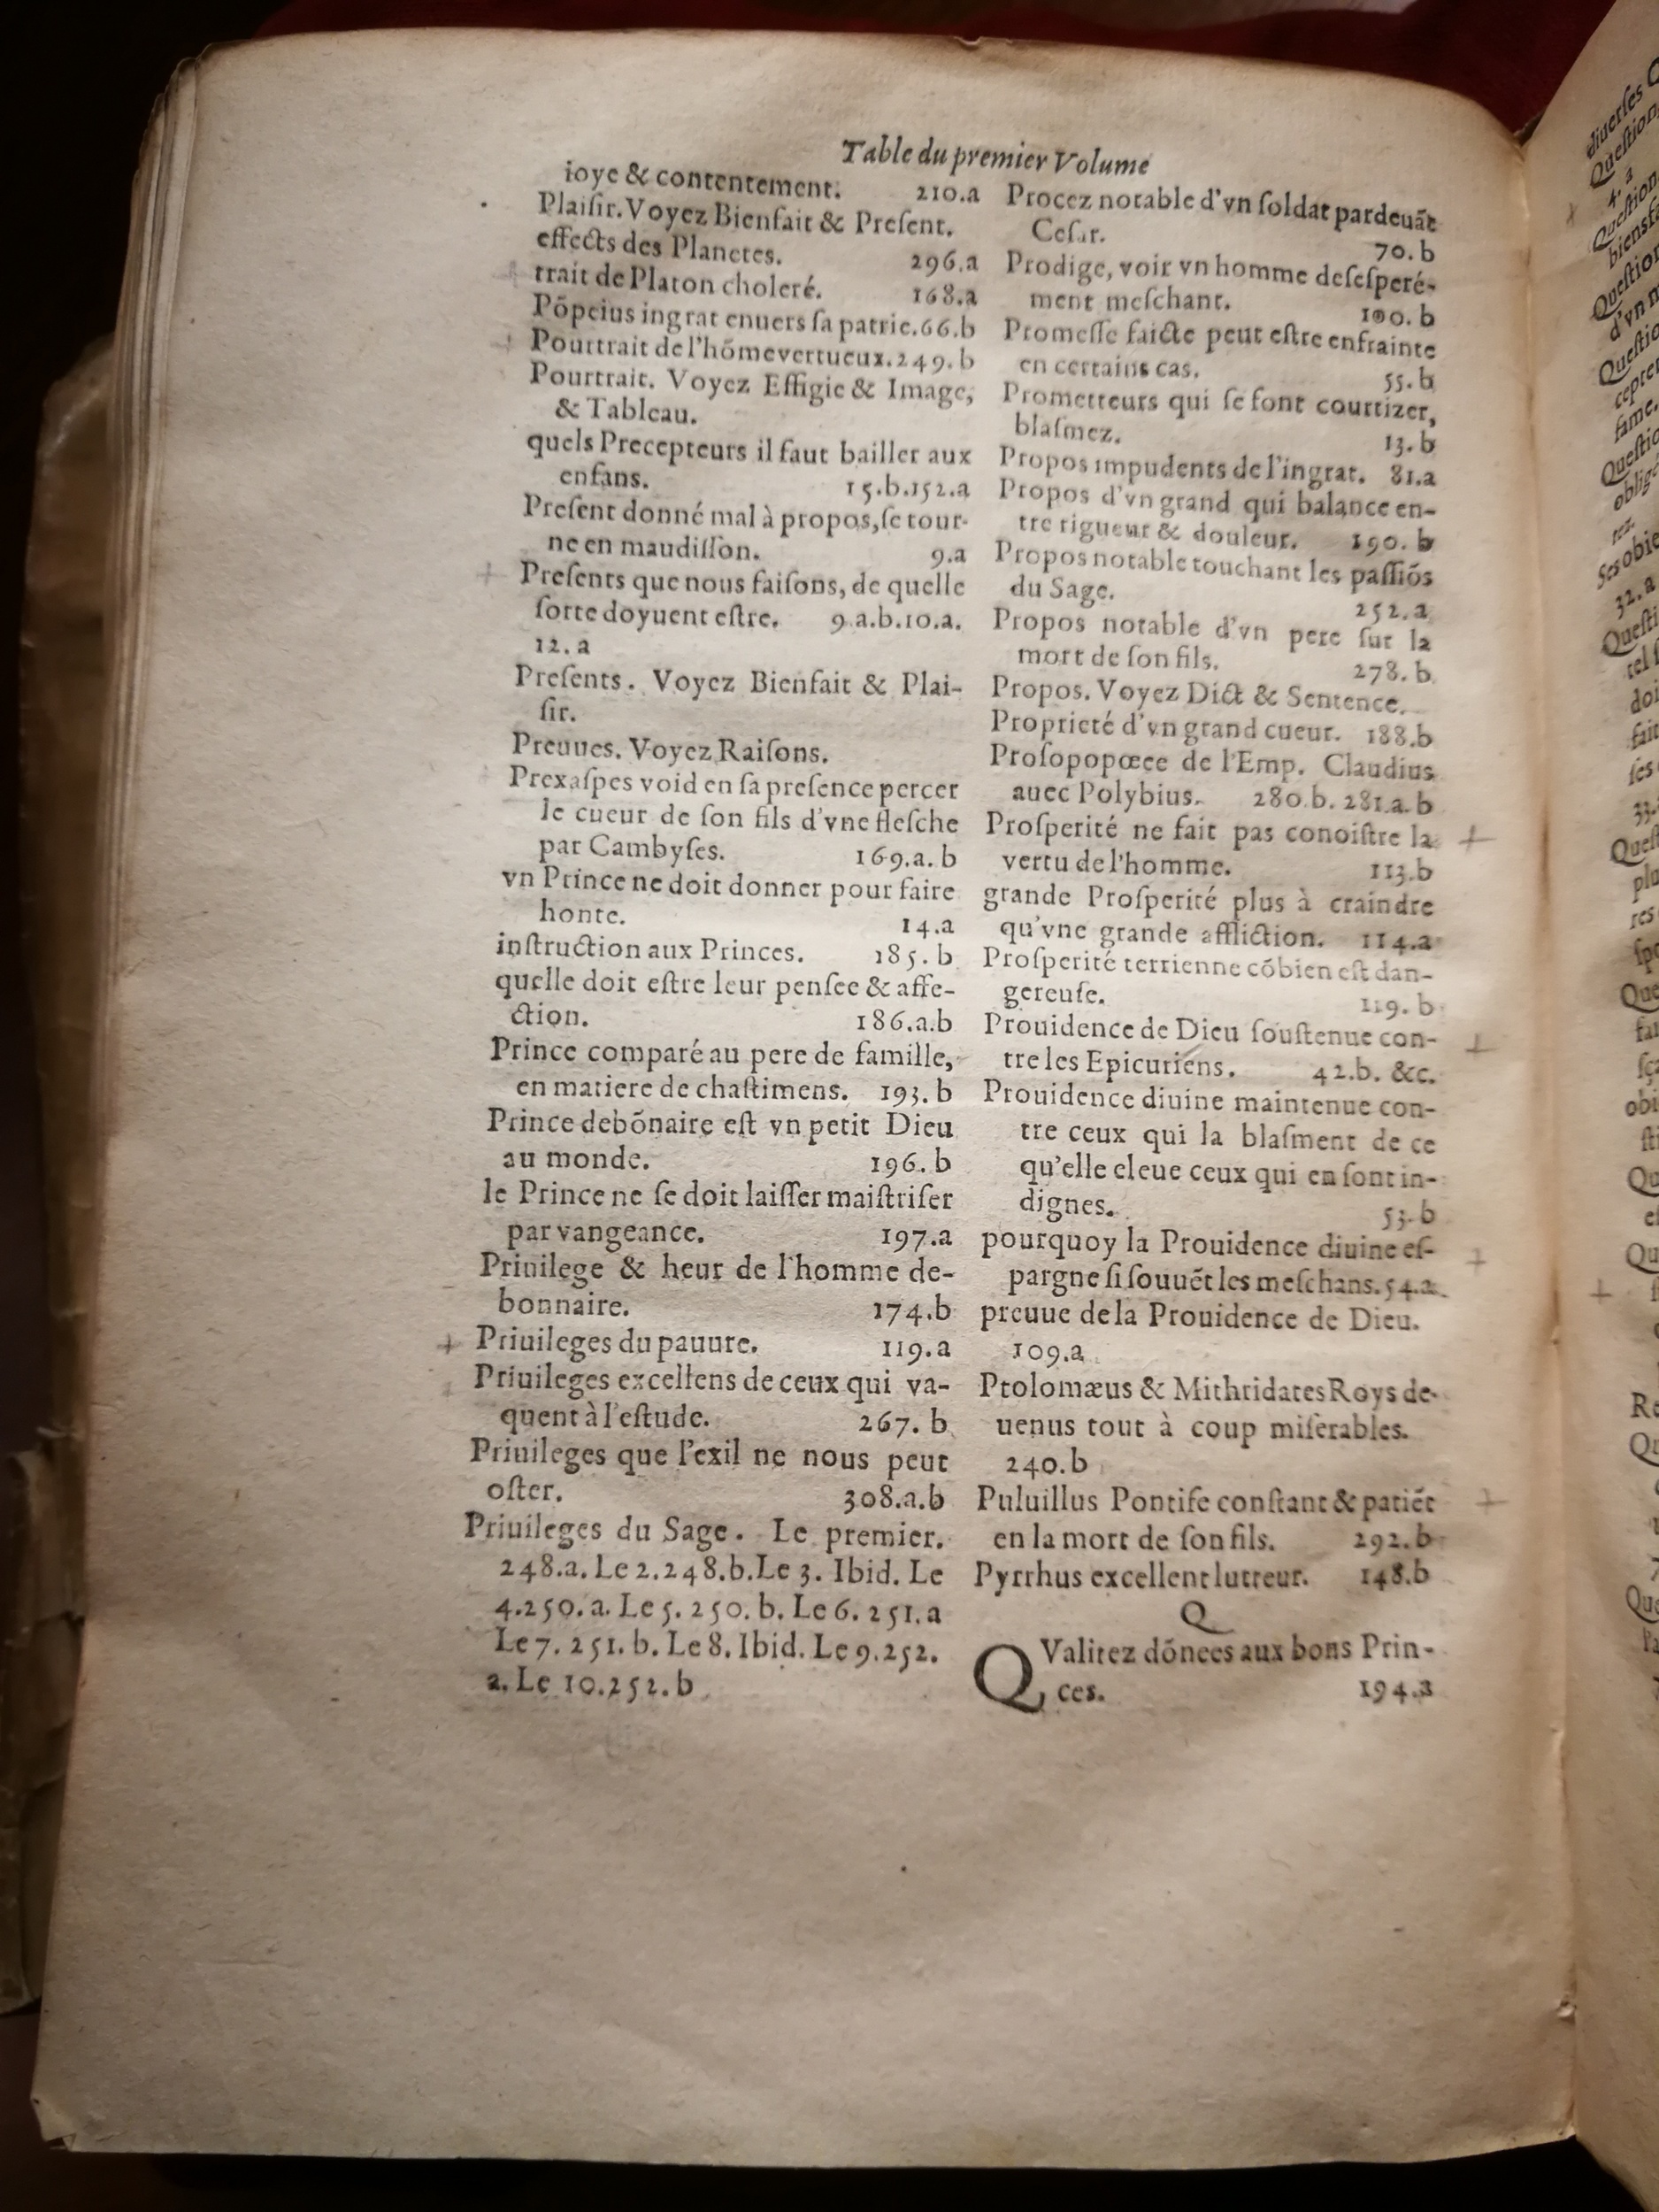 Table du premier Volume
ioye & contentement. 210.a
Plaiſir. Voyez Bienfait & Preſent.
effects des Planetes. 296.a
trait de Platon choleré. 168.a
Põpeius ingrat enuers ſa patrie. 66.b
Pourtrait de l'hõme vertueux. 249.b
Pourtrait. Voyez Effigie & Image,
& Tableau.
quels Precepteurs il faut bailler aux
enfans. 15.b.152.a
Preſent donné mal à propos, ſe tour-
ne en maudiſſon. 9.a
Preſents que nous faiſons, de quelle
ſorte doyuent eſtre. 9.a.b.10.a.
12.a
Preſents. Voyez Bienfait & Plai-
ſir.
Preuues. Voyez Raiſons.
Prexaſpes void en ſa preſence percer
le cueur de ſon fils d'vne fleſche
par Cambyſes. 169.a.b
vn Prince ne doit donner pour faire
honte. 14.a
inſtruction aux Princes. 185.b
quelle doit eſtre leur penſee & affe-
ction. 186.a.b
Prince comparé au pere de famille,
en matiere de chaſtimens. 193.b
Prince debõnaire eſt vn petit Dieu
au monde. 196.b
le Prince ne ſe doit laiſſer maiſtriſer
par vangeance. 197.a
Priuilege & heur de l'homme de-
bonnaire. 174.b
Priuileges du pauure. 119.a
Priuileges excellens de ceux qui va-
quent à l'eſtude. 267.b
Priuileges que l'exil ne nous peut
oſter. 308.a.b
Priuileges du Sage. Le premier.
248.a. Le 2.248.b. Le 3. Ibid. Le
4.250.a. Le 5. 250.b. Le 6. 251.a
Le 7. 251.b. Le 8. Ibid. Le 9.252.
a. Le 10.252.b
Procez notable d'vn ſoldat pardeuãt
Ceſar. 70.b
Prodige, voir vn homme deſeſperé-
ment meſchant. 100.b
Promeſſe faicte peut eſtre enfrainte
en certains cas. 55.b
Prometteurs qui ſe font courtizer,
blaſmez. 13.b
Propos impudents de l'ingrat. 81.a
Propos d'vn grand qui balance en-
tre rigueur & douleur. 190.b
Propos notable touchant les paſſiõs
du Sage. 252.a
Propos notable d'vn pere ſur la
mort de ſon fils. 278.b
Propos. Voyez Dict & Sentence.
Proprieté d'vn grand cueur. 188.b
Proſopopœce de l'Emp. Claudius
auec Polybius. 280.b. 281.a.b
Proſperité ne fait pas conoiſtre la
vertu de l'homme. 113.b
grande Proſperité plus à craindre
qu'vne grande affliction. 114.a
Proſperité terrienne cõbien eſt dan-
gereuſe. 119.b
Prouidence de Dieu ſouſtenue con-
tre les Epicuriens. 42.b. &c.
Prouidence diuine maintenue con-
tre ceux qui la blaſment de ce
qu'elle eleue ceux qui en ſont in-
dignes. 53.b
pourquoy la Prouidence diuine eſ-
pargne ſi ſouuẽt les meſchans. 54.a
preuue de la Prouidence de Dieu.
109.a
Ptolomæus & Mithridates Roys de-
uenus tout à coup miſerables.
240.b
Puluillus Pontife conſtant & patiẽt
en la mort de ſon fils. 292.b
Pyrrhus excellent lutteur. 148.b
Q
QValitez dõnees aux bons Prin-
ces. 194.a